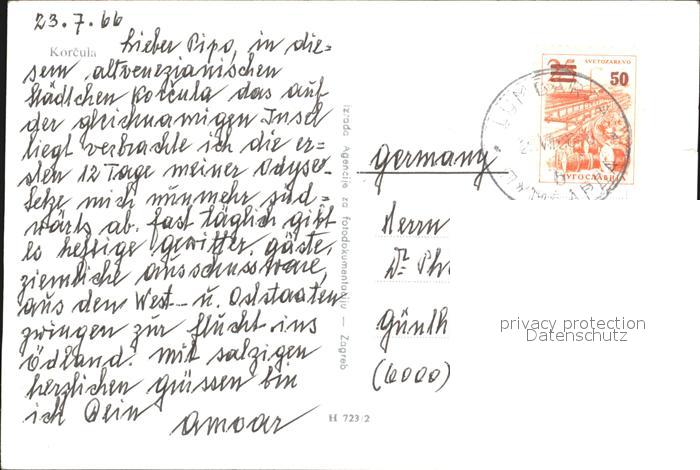 23.7.66
Korčula
Lieber Pipo, in die-
sem altvenezianischen
Städtchen Korčula das auf
der gleichnamigen Insel
liegt verbrachte ich die er-
sten 12 Tage meiner Odyse.
Setze mich nunmehr süd-
wärts ab. fast täglich gibt
es heftige gewitter. gäste,
ziemliche ausschussware,
aus den West- u. Oststaaten
zwingen zur flucht ins
Ödland. mit salzigen
herzlichen grüssen bin
ich Dein
amoar
Izrada Agencije za fotodokumentaciju — Zagreb
H 723/2
SVETOZAREVO
50
JUGOSLAVIJA
germany
Herrn
Dr. Ph
Günth
(6000)
privacy protection
Datenschutz